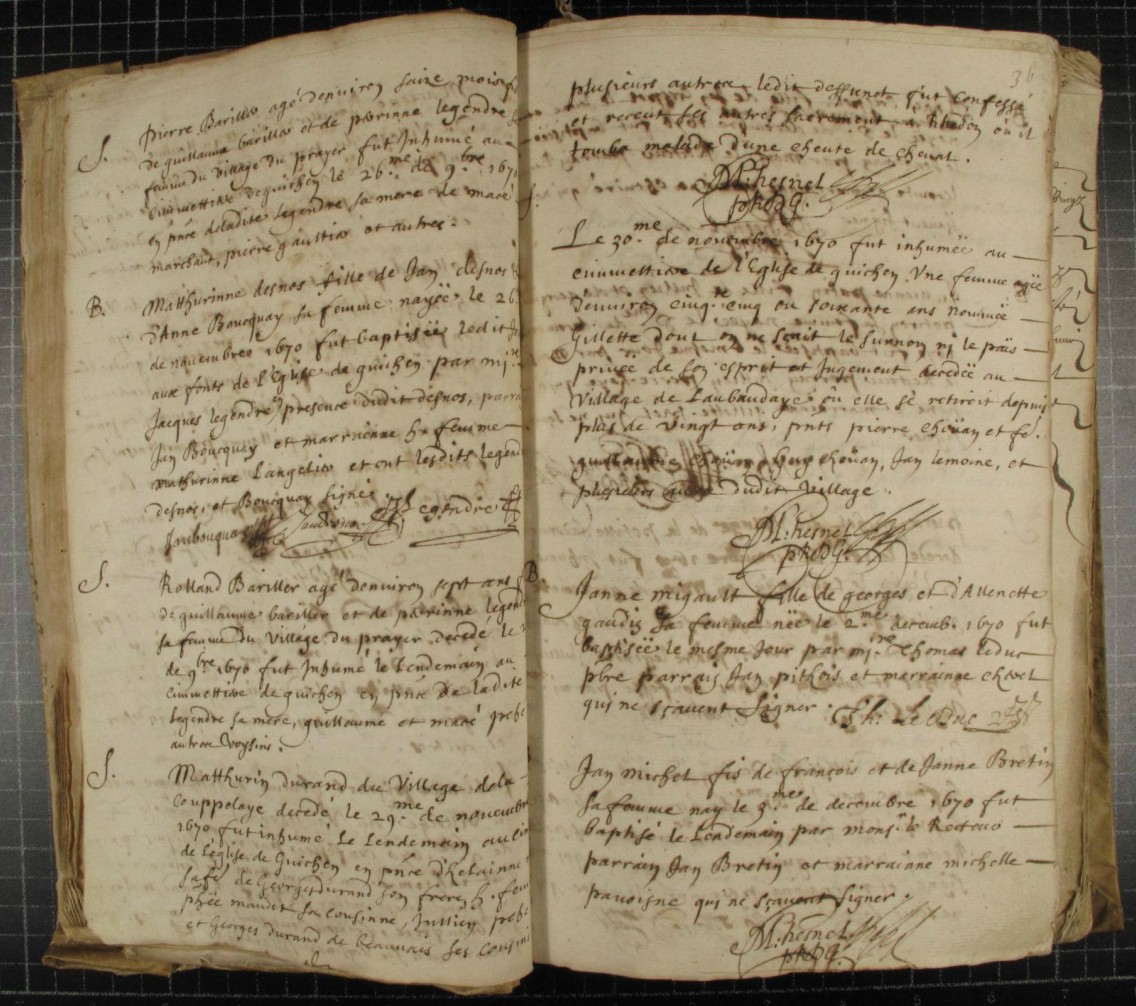 S.
pierre Bariller agé denviron saize mois fi
de guillaume bariller et de perinne legendre sa
femme du village du prayer fut Inhumé au
cimmettiere de guichen le 26.me de 9.bre 1670
en pnce de ladite legendre sa mere de macé
marchant, pierre gaultier et autres.
B.
Matthurinne desnos fille de Jan desnos
d'Anne Boucquay sa femme nayëe le 26
de nouembre 1670 fut baptisëe ledit Jo
aux fonts de l'Eglise de guichen par mi.re
Jacques legendre presence dudit desnos, parra
Jan Boucquay et marrainne h. femme
Mathurinne Langelier et ont lesdits legend
desnos, et Boucquay signé
Janboucquay J legendre
S.
Rolland Bariller agé denviron sept ans f
de guillaume bariller et de perinne legend
sa femme du village du prayer decedé le 2
de 9.bre 1670 fut Inhumé le lendemain au
cimmettiere de guichen en pnce de ladite
legendre sa mere, guillaume et macé
autres voysins.
S.
Matthurin durand du village dela
Couppelaye decedé le 29.me de nouembre
1670 fut inhumé le lendemain au cim
de l'eglise de Guichen en pnce d'helainne
sa fe de Georges durand son frere, h. fem
maudet sa cousinne, Jullien
et Georges durand de Beauuais ses cousins
36
plusieurs autres ledit deffunct fut confessé
et receut les autres sacrement à ou il
tomba malade d'une cheute de cheual.
M: hesnel
Le 30.me de nouembre 1670 fut inhumëe au
cimmettiere de l'Eglise de guichen Une femme agëe
d'enuiron cinq.te cinq ou soixante ans nommëe
Gillette dont on ne sçait le surnom ny le païs
privëe de son esprit et Jugement decedëe au
village de Laubaudaye où elle se retiroit depuis
plus de vingt ans, pnts pierre choüan et fe.
choüan, Jan lemoine, et
plusieurs autres dudit village.
M: hesnel
B.
Janne migault fille de georges et d'Allenette
gaudin sa femme nëe le 2.me decemb. 1670 fut
baptisëe le mesme Jour par mi.re Thomas leduc
pbre parrain Jan pithois et marrainne
qui ne sçauent signer. Th: Le Duc
Jan michel fis de françois et de Janne Bretin
sa femme nay le 3.me de decembre 1670 fut
baptisé le lendemain par mons.r le Recteur
parrain Jan Bretin et marrainne michelle
pauoisne qui ne sçauent signer.
M: hesnel